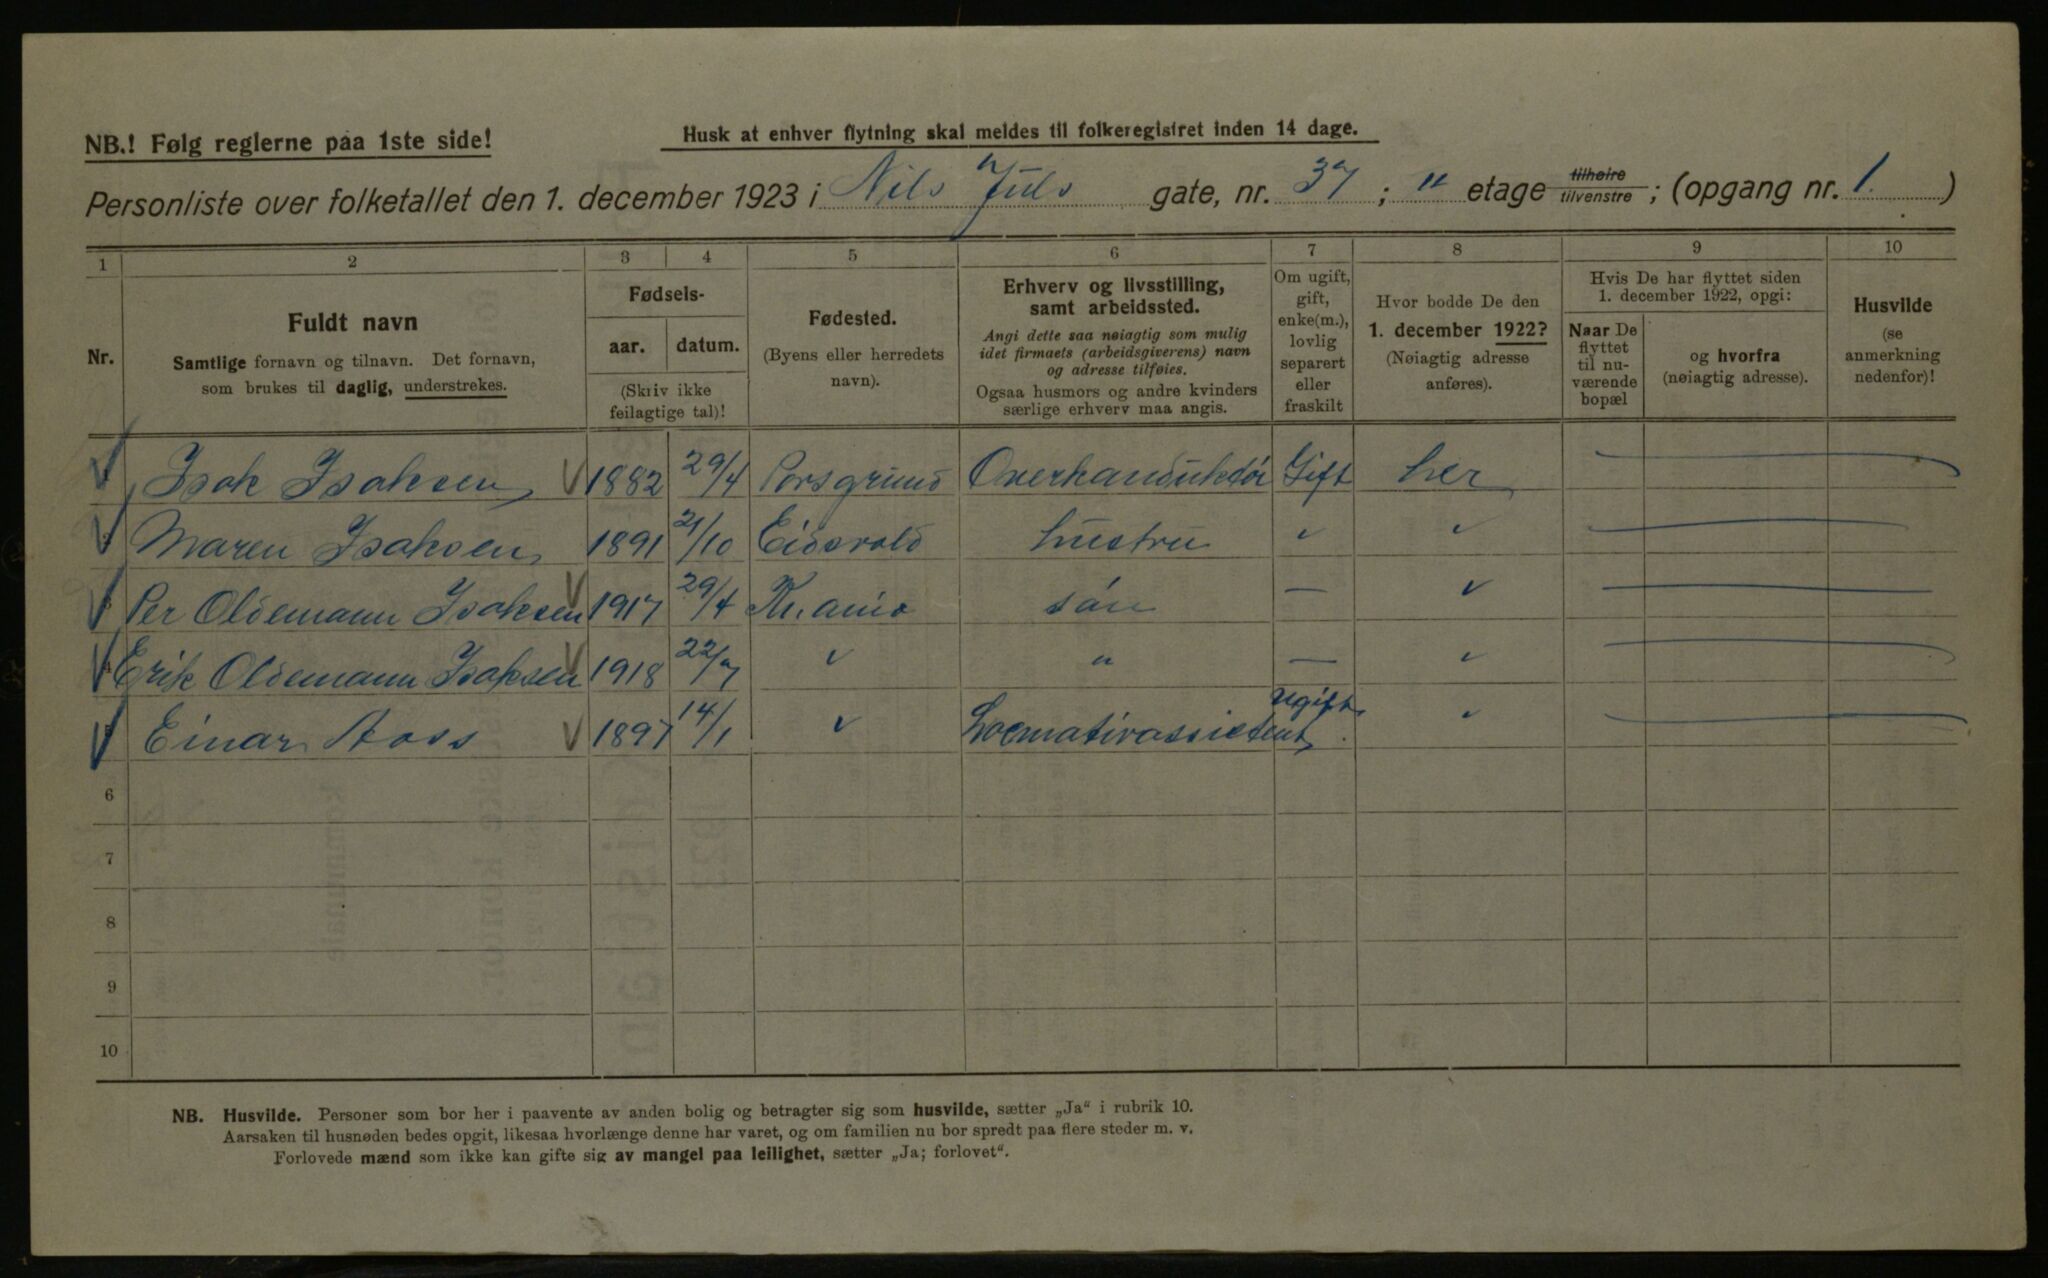 NB.! Følg reglerne paa 1ste side!
Husk at enhver flytning skal meldes til folkeregistret inden 14 dage.
Personliste over folketallet den 1. december 1923 i Nils Juls gate, nr. 37; II etage tilhøire tilvenstre; (opgang nr. 1)
1 2 3 4 5 6 7 8 9 10
Nr.
Fuldt navn
Samtlige fornavn og tilnavn. Det fornavn,
som brukes til daglig, understrekes.
Fødsels-
aar. datum.
(Skriv ikke
feilagtige tal)!
Fødested.
(Byens eller herredets
navn).
Erhverv og livsstilling,
samt arbeidssted.
Angi dette saa nøiagtig som mulig
idet firmaets (arbeidsgiverens) navn
og adresse tilføies.
Ogsaa husmors og andre kvinders
særlige erhverv maa angis.
Om ugift,
gift,
enke(m.),
lovlig
separert
eller
fraskilt
Hvor bodde De den
1. december 1922?
(Nøiagtig adresse
anføres).
Hvis De har flyttet siden
1. december 1922, opgi:
Naar De
flyttet
til nu-
værende
bopæl
og hvorfra
(nøiagtig adresse).
Husvilde
(se
anmerkning
nedenfor)!
Isak Isaksen 1882 29/4 Porsgrund Overkonduktør Gift her
Maren Isaksen 1891 21/10 Eidsvold hustru " "
Per Oldemann Isaksen 1917 29/4 Kr.ania søn — "
4 Erik Oldemann Isaksen 1918 22/7 " " — "
5 Einar Aass 1897 14/1 " Locmativassistent ugift "
6
7
8
9
10
NB. Husvilde. Personer som bor her i paavente av anden bolig og betragter sig som husvilde, sætter „Ja“ i rubrik 10.
Aarsaken til husnøden bedes opgit, likesaa hvorlænge denne har varet, og om familien nu bor spredt paa flere steder m. v.
Forlovede mænd som ikke kan gifte sig av mangel paa leilighet, sætter „Ja; forlovet“.